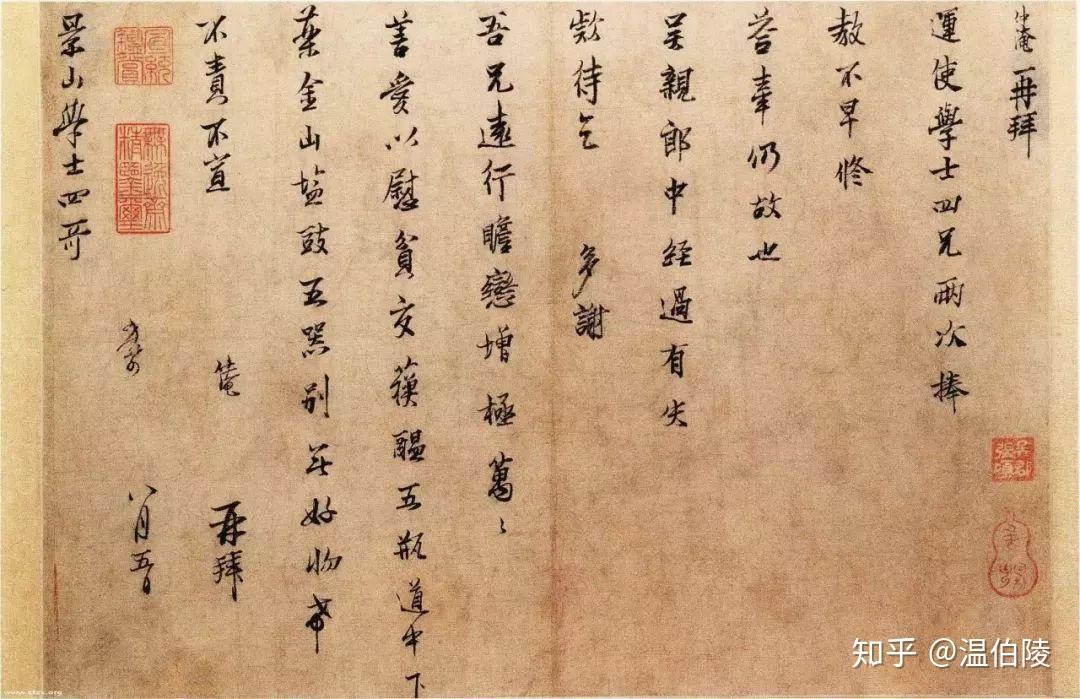 仲淹再拜
運使學士四兄兩次捧
教不早修
荅奉仍故也
吴親郎中經過有失
欵待乞 多謝
吾兄遠行瞻戀增極萬〻
善愛以慰貧交蘓醖五瓶道中下
藥金山盐豉五器别無好物希
不責不宣 仲淹 再拜
景山學士四哥 八月五日
知乎 @温伯陵